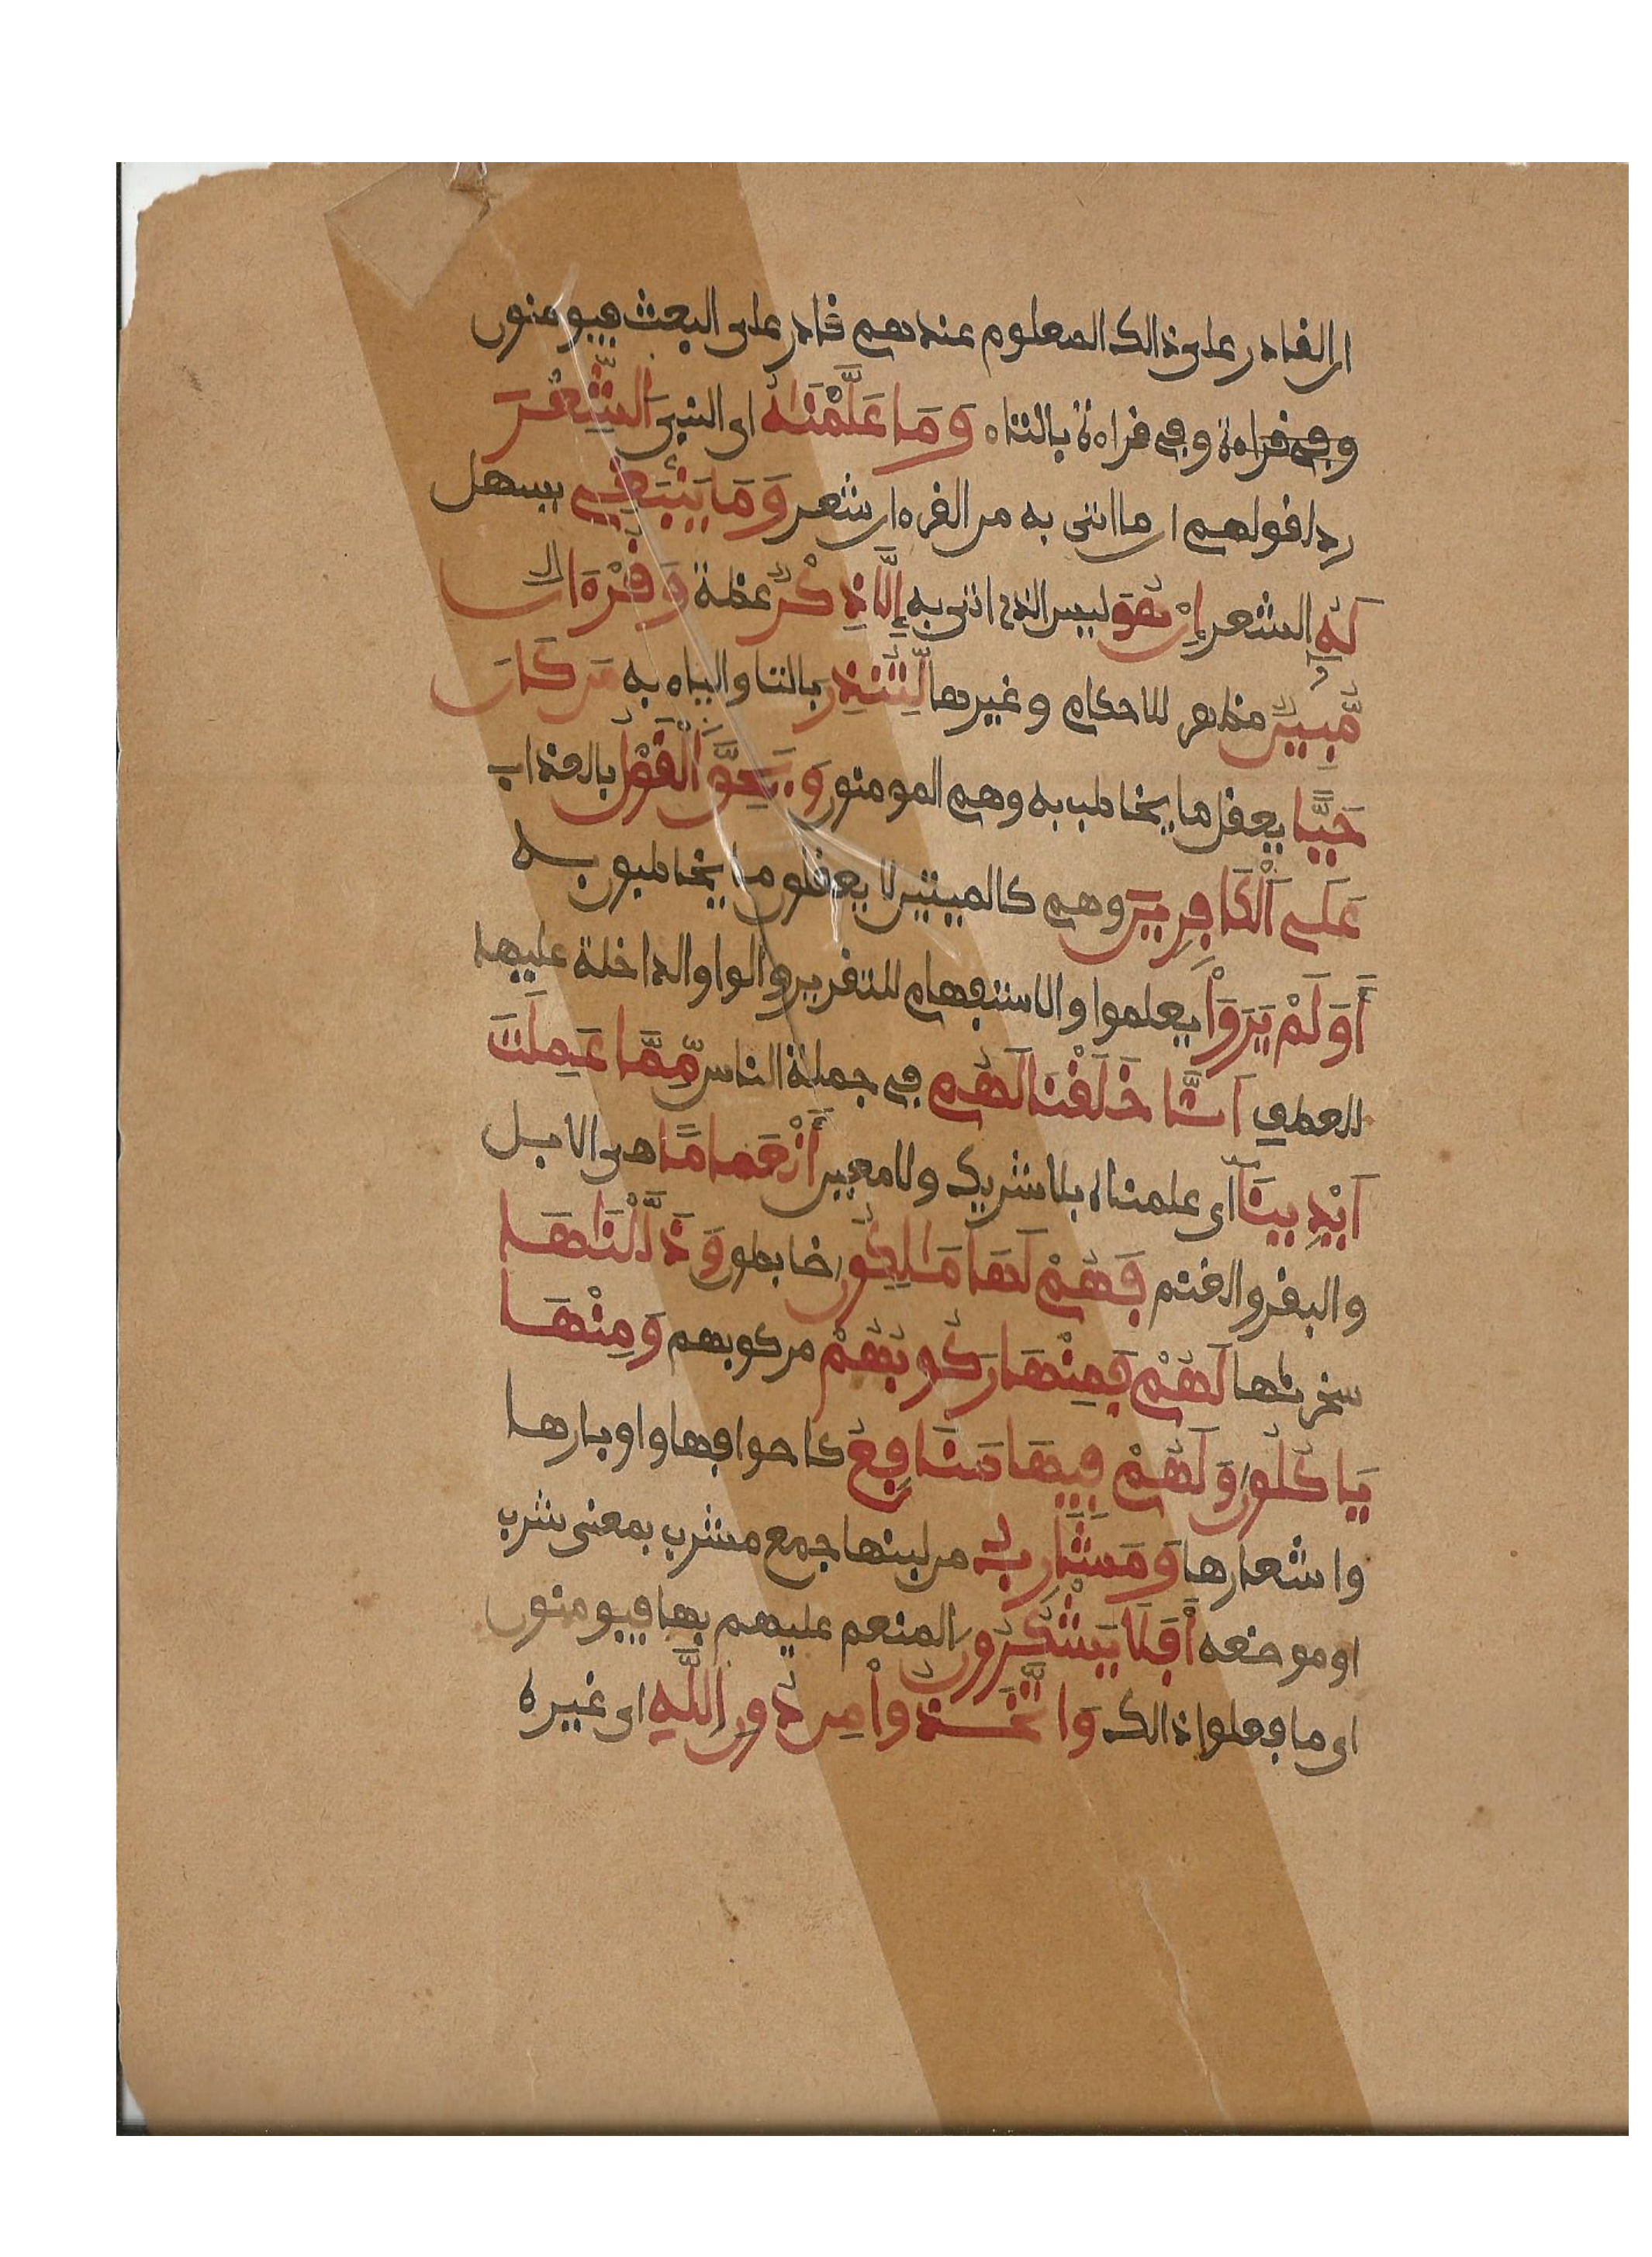 ان القادر على ذالك المعلوم عندهم قادر على البعث فيومنون
وفي قراءة وفي قراءة بالتاء وَمَا عَلَّمْنَٰهُ اى النبيَ اَلشِّعْرَ
ردا لقولهم ان ما اتى به من القرءان شعر وَمَا يَنۢبَغِے يسهل
لَهُۥٓ الشعر إِنْ هُوَ ليس الذي اتى به إِلَّا ذِكْرٌ عظة وَقُرْءَانٌ
مُّبِينٌ مظهر للاحكام وغيرها لِّتُنذِرَ بالتا والياء به مَن كَانَ
حَيّٗا يعقل ما يخاطب به وهم المومنون وَيَحِقَّ اَلْقَوْلُ بالعذاب
عَلَى اَلْكَافِرِينَ وهم كالميتين لا يعقلون ما يخاطبون به
أَوَلَمْ يَرَوْاْ يعلموا والاستفهام للتقرير والواو الداخلة عليها
للعطف اَنَّا خَلَقْنَا لَهُم في جملة الناس مِّمَّا عَمِلَتَ
اَيْدِينَآ اى علمناه بلا شريك ولا معين أَنْعَاماً هى الابل
والبقر والغنم فَهُمْ لَهَا مَٰلِكُونَ ضابطون وَذَلَّلْنَٰهَا
سخرنها لَهُمْ فَمِنْهَا رَكُوبُهُمْ مركوبهم وَمِنْهَا
يَاكُلُونَ وَلَهُمْ فِيهَا مَنَٰفِعُ كاصوافها واوبارها
واشعارها وَمَشَارِبُ من لبنها جمع مشرب بمعنى شرب
او موضعه أَفَلَا يَشْكُرُونَ المنعم عليهم بها فيومنون
اى ما فعلوا ذالك وَاتَّخَذُواْ مِن دُونِ اِللَّهِ اى غيره